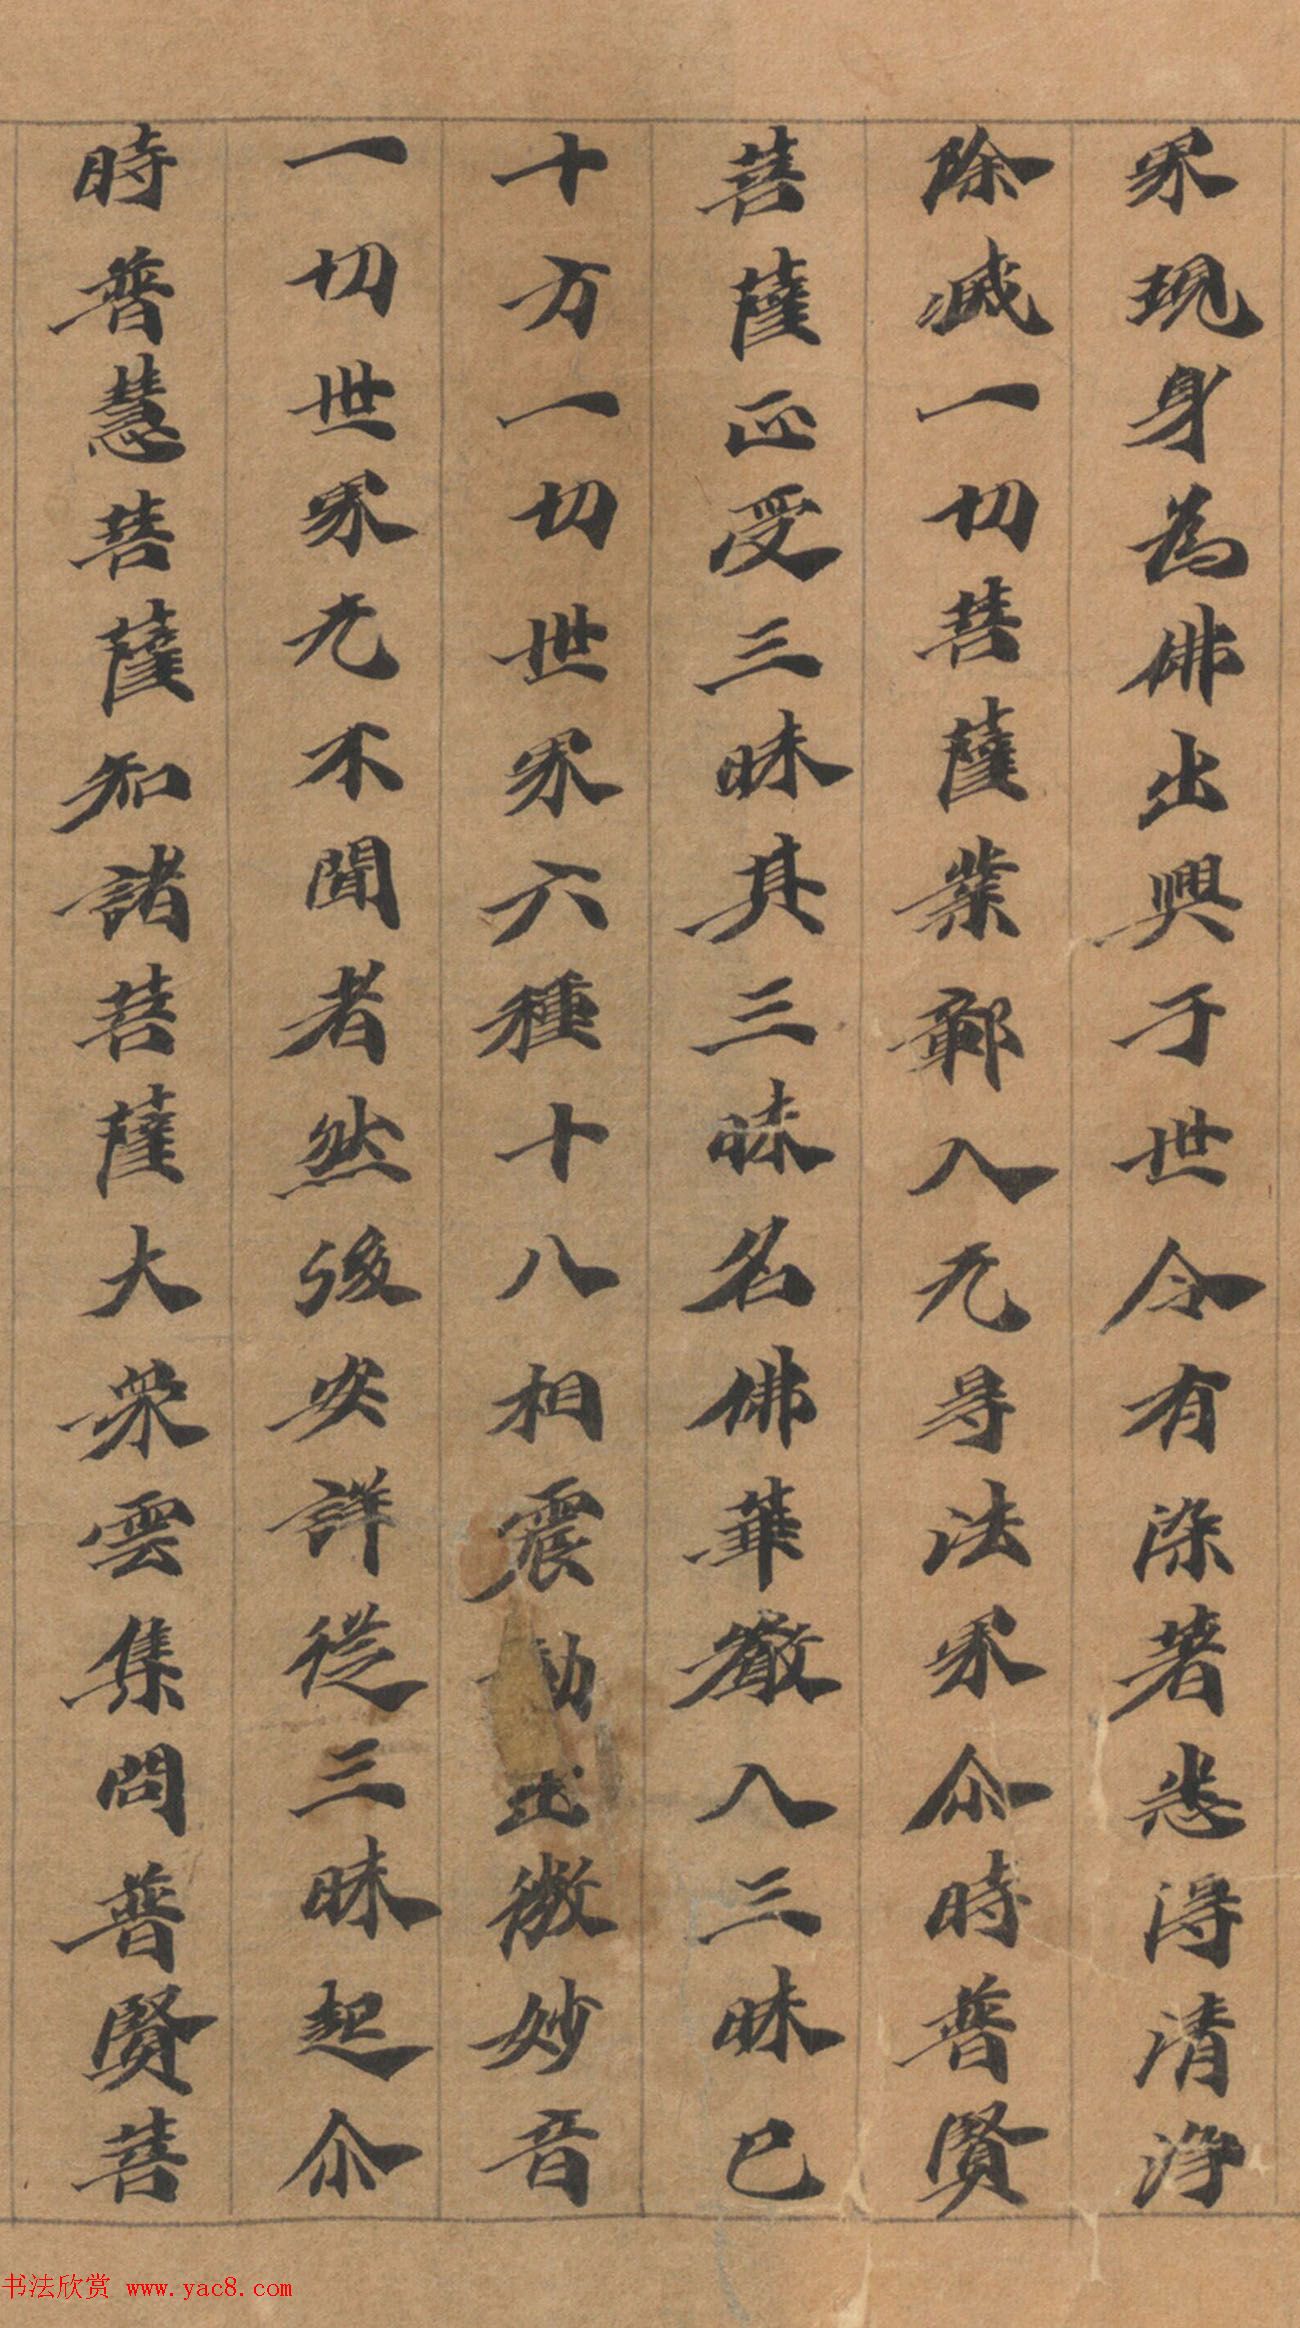 界現身為佛出興于世令有染著悉得清淨
除滅一切菩薩業鄣入无㝵法界尒時普賢
菩薩正受三昧其三昧名佛華嚴入三昧已
十方一切世界六種十八相震動出微妙音
一切世界无不聞者然後安詳從三昧起尒
時普慧菩薩知諸菩薩大衆雲集問普賢菩
书法欣赏 www.yac8.com